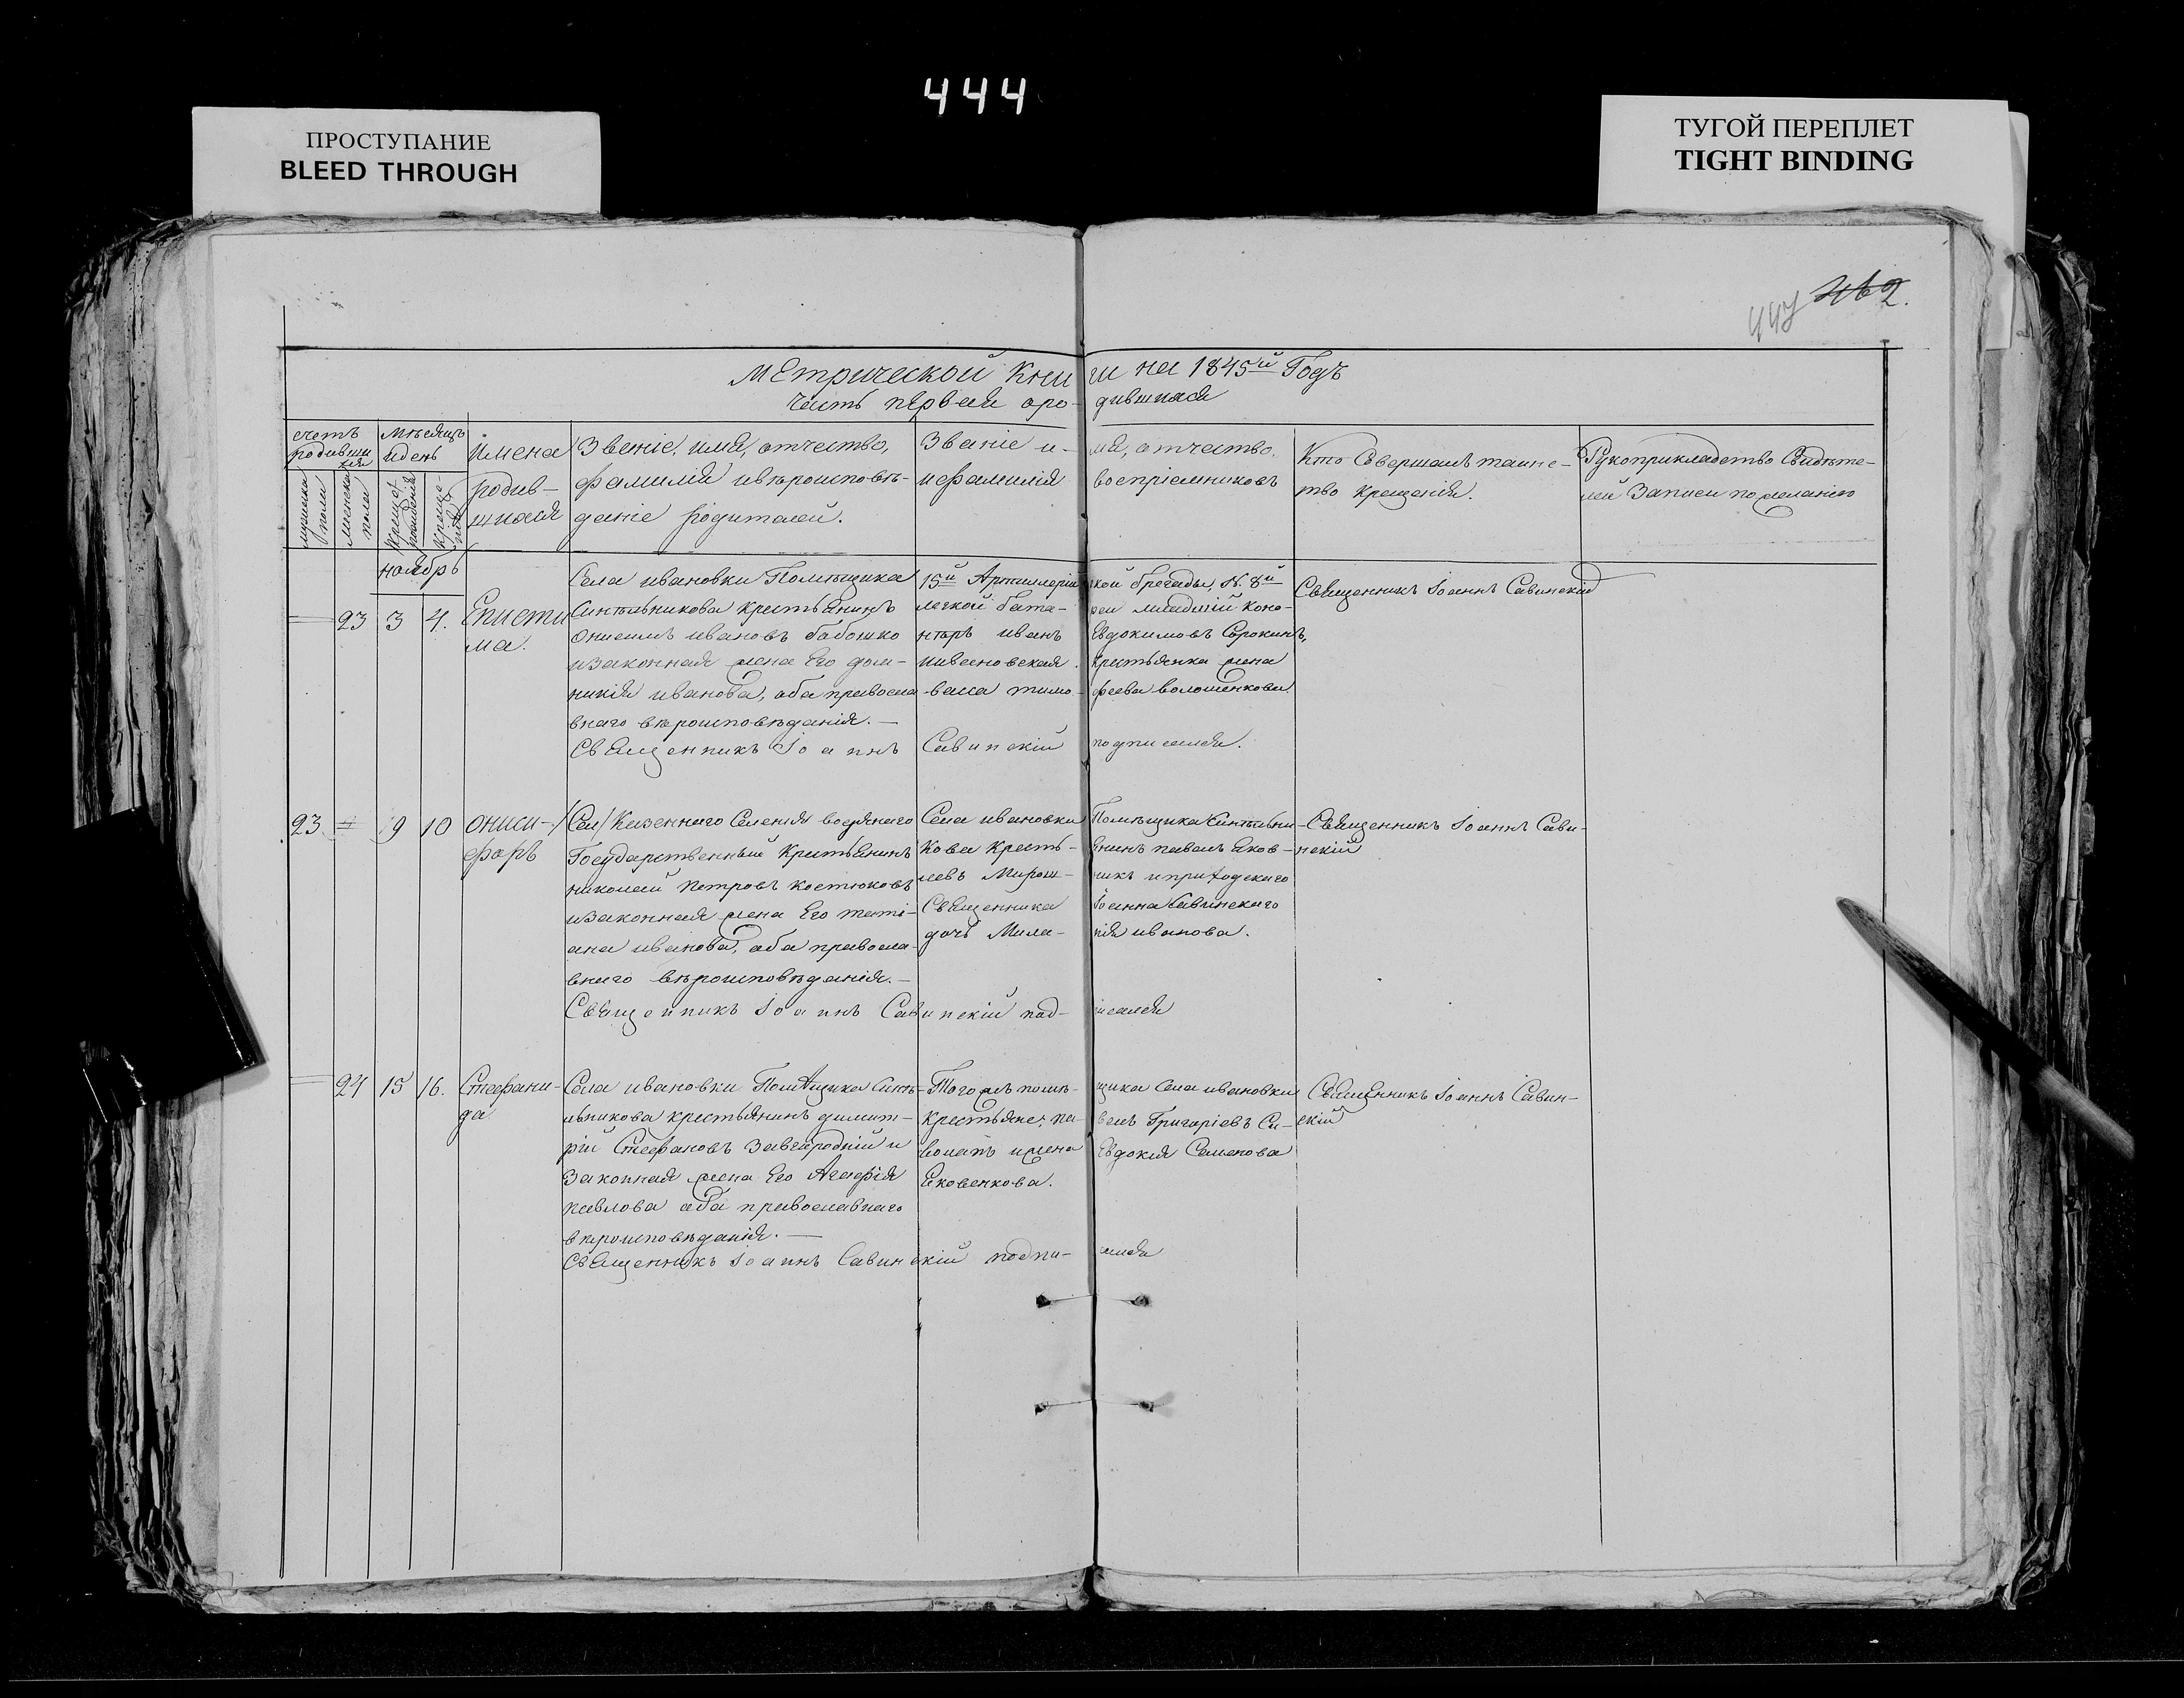 444
ПРОСТУПАНИЕ
BLEED THROUGH
ТУГОЙ ПЕРЕПЛЕТ
TIGHT BINDING
447
Метрической Книги на 1845й Годъ
Часть первая о родившихся
счетъ родившихся
мужеска пола
женска пола
Мѣсяцъ и день
рожденія
крещенія
Имена родившихся
Званіе, имя, отчество, фамилія и вѣроисповѣданіе родителей.
Званіе имя, отчество, и фамилія воспріемниковъ
Кто совершалъ таинство крещенія.
Рукоприкладство свидѣтелей записи по желанію
ноябрь
23 3 4. Епистима.
Села ивановки Помѣщика
Синтельникова крестьянинъ
Онисимъ ивановъ бабошко
и законная жена Его домникія иванова, оба православнаго вѣроисповѣданія.—
15й Артиллерійской бригады, N. 8й
легкой батареи младшій коно-
иванъ Евдокимовъ Сорокинъ,
и ивановская крестьянка жена
тимофеева волошенкова.
Священникъ Іоаннъ Савинскій
Священникъ Іоаннъ Савинскій подписался.
23 = 9 10 Онисифоръ
Казеннаго Селенія водянаго
Государственный Крестьянинъ
николай Петровъ Костюковъ
и законная жена Его татіана иванова, оба православнаго вѣроисповѣданія.—
Села ивановки Помѣщика Синтельникова крестьянинъ павелъ Яковлевъ Мирошникъ и приходскаго
Священника Іоанна Савинскаго
дочь Миланія иванова.
Священникъ Іоаннъ Савинскій
Священникъ Іоаннъ Савинскій подписался
24 15 16. Стефанида
Села ивановки Помѣщика Синтельникова крестьянинъ димитрій Стефановъ Завгородній и
Законная жена Его Агафія
павлова оба православнаго
вѣроисповѣданія.—
Того жъ помѣщика села ивановки
крестьяне: павелъ Григоріевъ
и жена Евдокія Семенова
Яковенкова.
Священникъ Іоаннъ Савинскій
Священникъ Іоаннъ Савинскій подписался